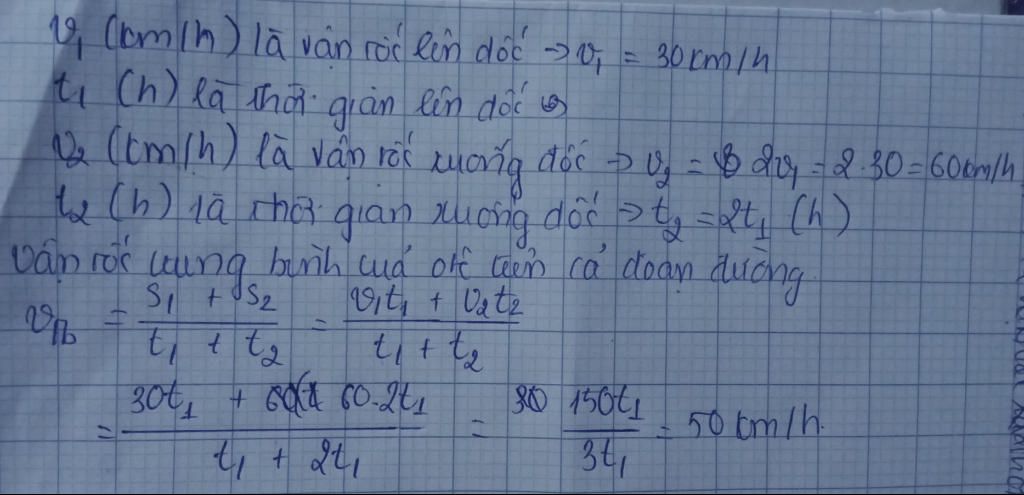 v₁ (km/h) là vận tốc lên dốc → v₁ = 30 km/h
t₁ (h) là thời gian lên dốc
v₂ (km/h) là vận tốc xuống dốc → v₂ = 2v₁ = 2.30 = 60 km/h
t₂ (h) là thời gian xuống dốc → t₂ = 2t₁ (h)
Vận tốc trung bình của ôtô trên cả đoạn đường
v_tb = (s₁ + s₂)/(t₁ + t₂) = (v₁t₁ + v₂t₂)/(t₁ + t₂)
= (30t₁ + 60.2t₁)/(t₁ + 2t₁) = 150t₁/3t₁ = 50 km/h.